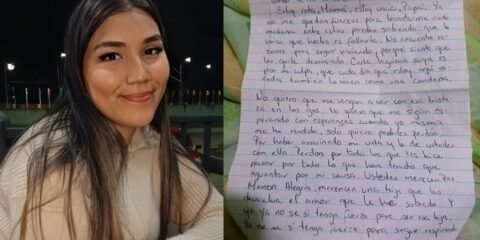 Estoy rota, Mamá, estoy vacía, Papá. Ya
no me quedan fuerzas para levantarme cada
mañana entre estas paredes sabiendo que lo
único que hecho es fallarte No encuentro ra
zones para seguir viviendo, porque siento que
yo quite demasiado Cada lagrima suya es
por mi culpa, que cada día que estoy aquí us
tedes también lo viven como una condena.
No quiero que me vengan a ver con esa triste
za en los ojos. No quiero que me sigan es
perando con esperanzas cuando yo misma
me he rendido, solo quiero pedirles perdón...
Por haber arruinado mi vida y la de ustedes
con ella. Perdon por todo lo que les hice
pasar por todo lo que han tenido que
aguantar por mi causa. Ustedes merecen Paz
Merecen Alegría, merecían una hija que les
devuelva el amor que le han sabido... Y
yo, Ya no se si tenga fuerza para ser esa hija.
Ya no se si tenga fuerza para seguir respirando